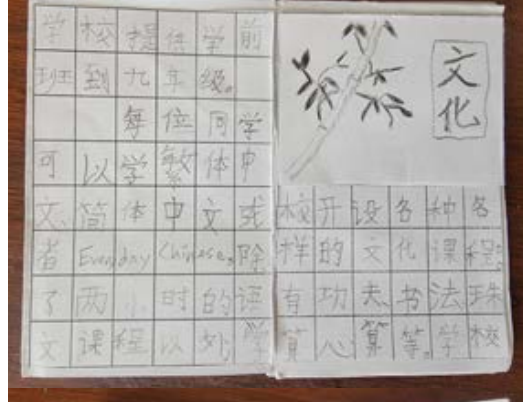 学校提供学前
班到九年级。
每位同学
可以学繁体中
文、简体中文或
者 Everyday Chinese。除
了两小时的语
文课程以外，学
文化
校开设各种各
样的文化课程，
有功夫、书法、珠
算、心算等。学校